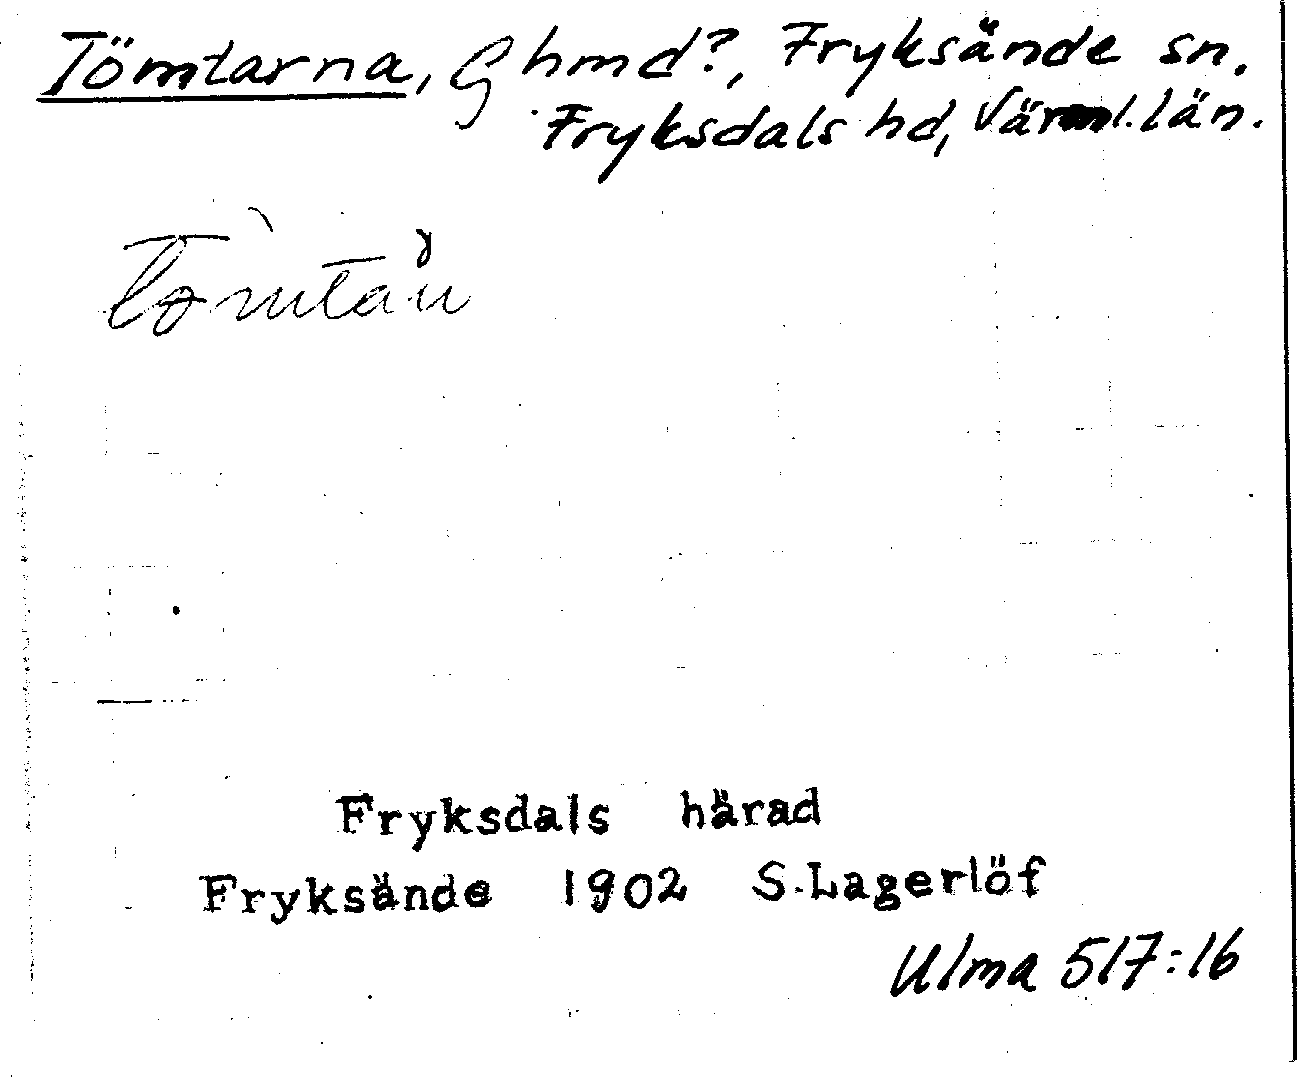 Tömtarna, G hmd?, Fryksände sn.
Fryksdals hd, Värml. län.
Fryksdals härad
Fryksände 1902 S.Lagerlöf
Ulma 517:16